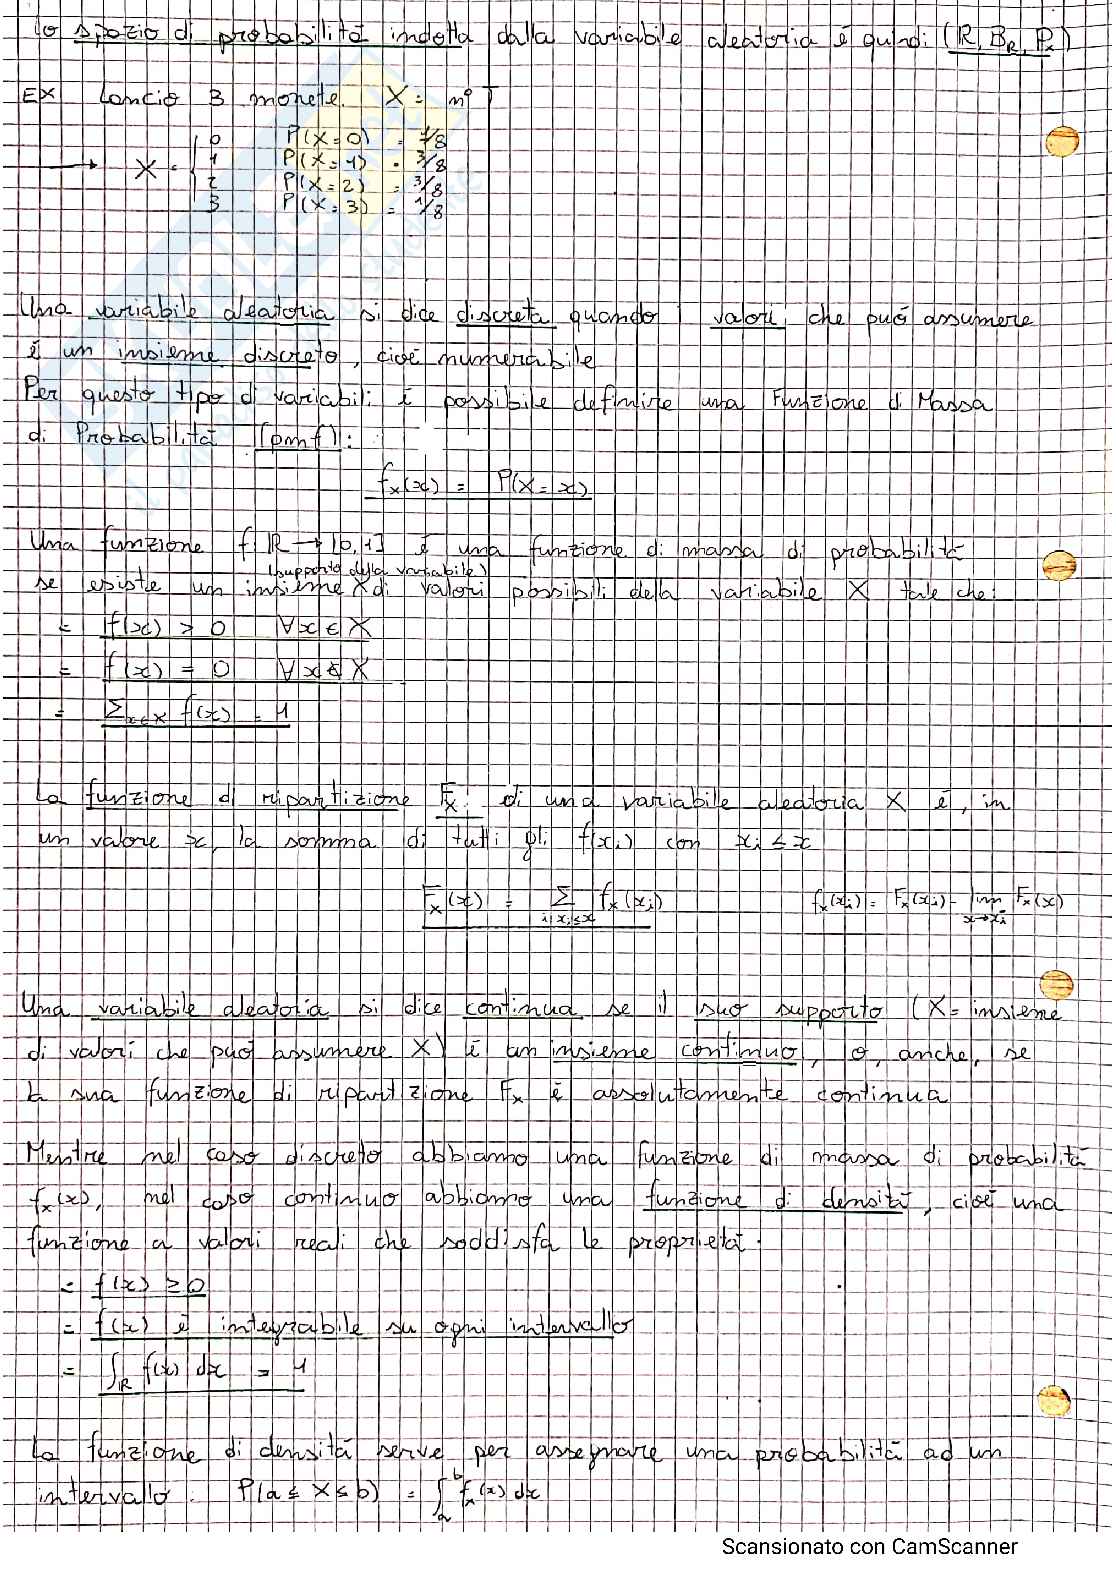 lo spazio di probabilità indotta dalla variabile aleatoria è quindi (R, B_R, P_x)
EX Lancio 3 monete. X = n° T
X = { 0 P(X=0) = 1/8
1 P(X=1) = 3/8
2 P(X=2) = 3/8
3 P(X=3) = 1/8
Una variabile aleatoria si dice discreta quando i valori che può assumere
è un insieme discreto, cioè numerabile
Per questo tipo di variabili è possibile definire una Funzione di Massa
di Probabilità (pmf):
f_x(x) = P(X = x)
Una funzione f: R → [0,1] è una funzione di massa di probabilità
(supporto della variabile)
se esiste un insieme X di valori possibili della variabile X tale che:
= f(x) > 0 ∀x ∈ X
= f(x) = 0 ∀x ∉ X
= Σ_{x∈X} f(x) = 1
La funzione di ripartizione F_x di una variabile aleatoria X è, in
un valore x, la somma di tutti gli f(x_i) con x_i ≤ x
F_x(x) = Σ_{i: x_i ≤ x} f_x(x_i) f_x(x_i) = F_x(x_i) - lim_{x→x_i^-} F_x(x)
Una variabile aleatoria si dice continua se il suo supporto (X = insieme
di valori che può assumere X) è un insieme continuo, o, anche, se
la sua funzione di ripartizione F_x è assolutamente continua
Mentre nel caso discreto abbiamo una funzione di massa di probabilità
f_x(x), nel caso continuo abbiamo una funzione di densità, cioè una
funzione a valori reali che soddisfa le proprietà:
= f(x) ≥ 0
= f(x) è integrabile su ogni intervallo
= ∫_R f(x) dx = 1
La funzione di densità serve per assegnare una probabilità ad un
intervallo. P(a ≤ X ≤ b) = ∫_a^b f_x(x) dx
Scansionato con CamScanner